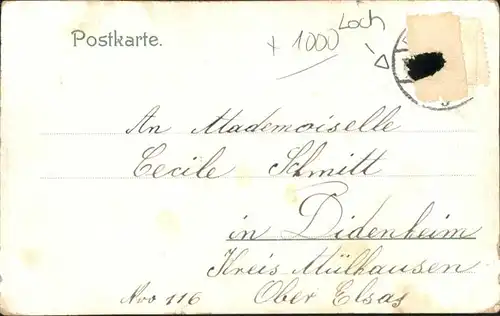 Postkarte.
x 1000 Loch
An Mademoiselle
Cecile Schmitt
in Didenheim
Kreis Mülhausen
Nro 116 Ober Elsas